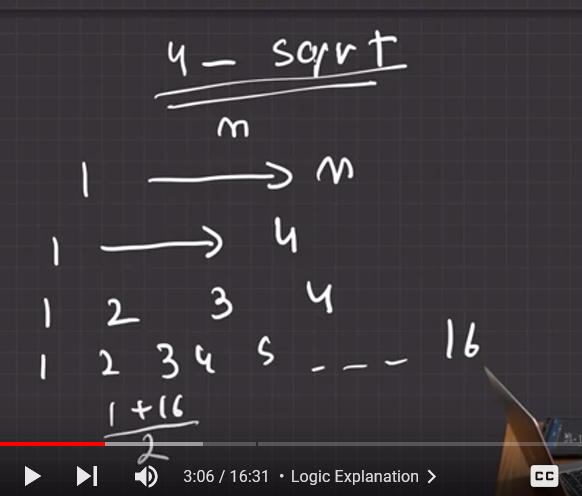 4 - sqrt
n
1 → n
1 → 4
1 2 3 4
1 2 3 4 5 --- 16
1 + 16
2
3:06 / 16:31 • Logic Explanation >
CC